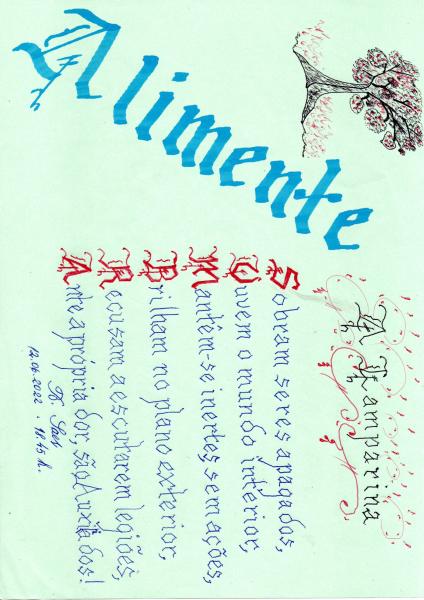 Alimente
A Lamparina
Sobram seres apagados,
Ouvem o mundo interior,
Mantêm-se inertes, sem ações,
Brilham no plano exterior,
Recusam a escutarem legiões,
Ante a própria dor, são Auxiliados!